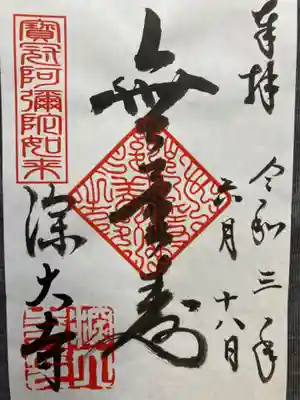 奉拝
令和三年
六月十八日
無量寿
寳冠阿彌陀如来
深大寺